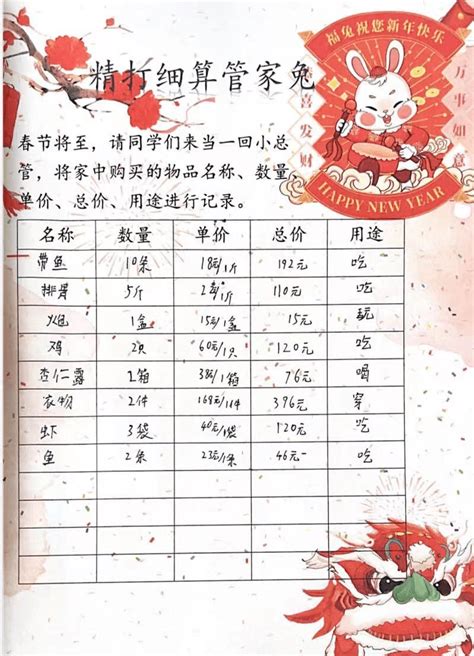 福兔祝您新年快乐
恭喜发财
万事如意
HAPPY NEW YEAR
精打细算管家兔
春节将至，请同学们来当一回小总
管，将家中购买的物品名称、数量、
单价、总价、用途进行记录。
名称 数量 单价 总价 用途
带鱼 10条 18元/1斤 192元 吃
排骨 5斤 110元 吃
火炮 1盒 15元/1盒 15元 玩
鸡 2只 60元/1只 120元 吃
杏仁露 38元/1箱 76元 喝
衣物 2件 396元 穿
虾 3袋 40元/1袋 120元 吃
鱼 2条 23元/1条 46元 吃